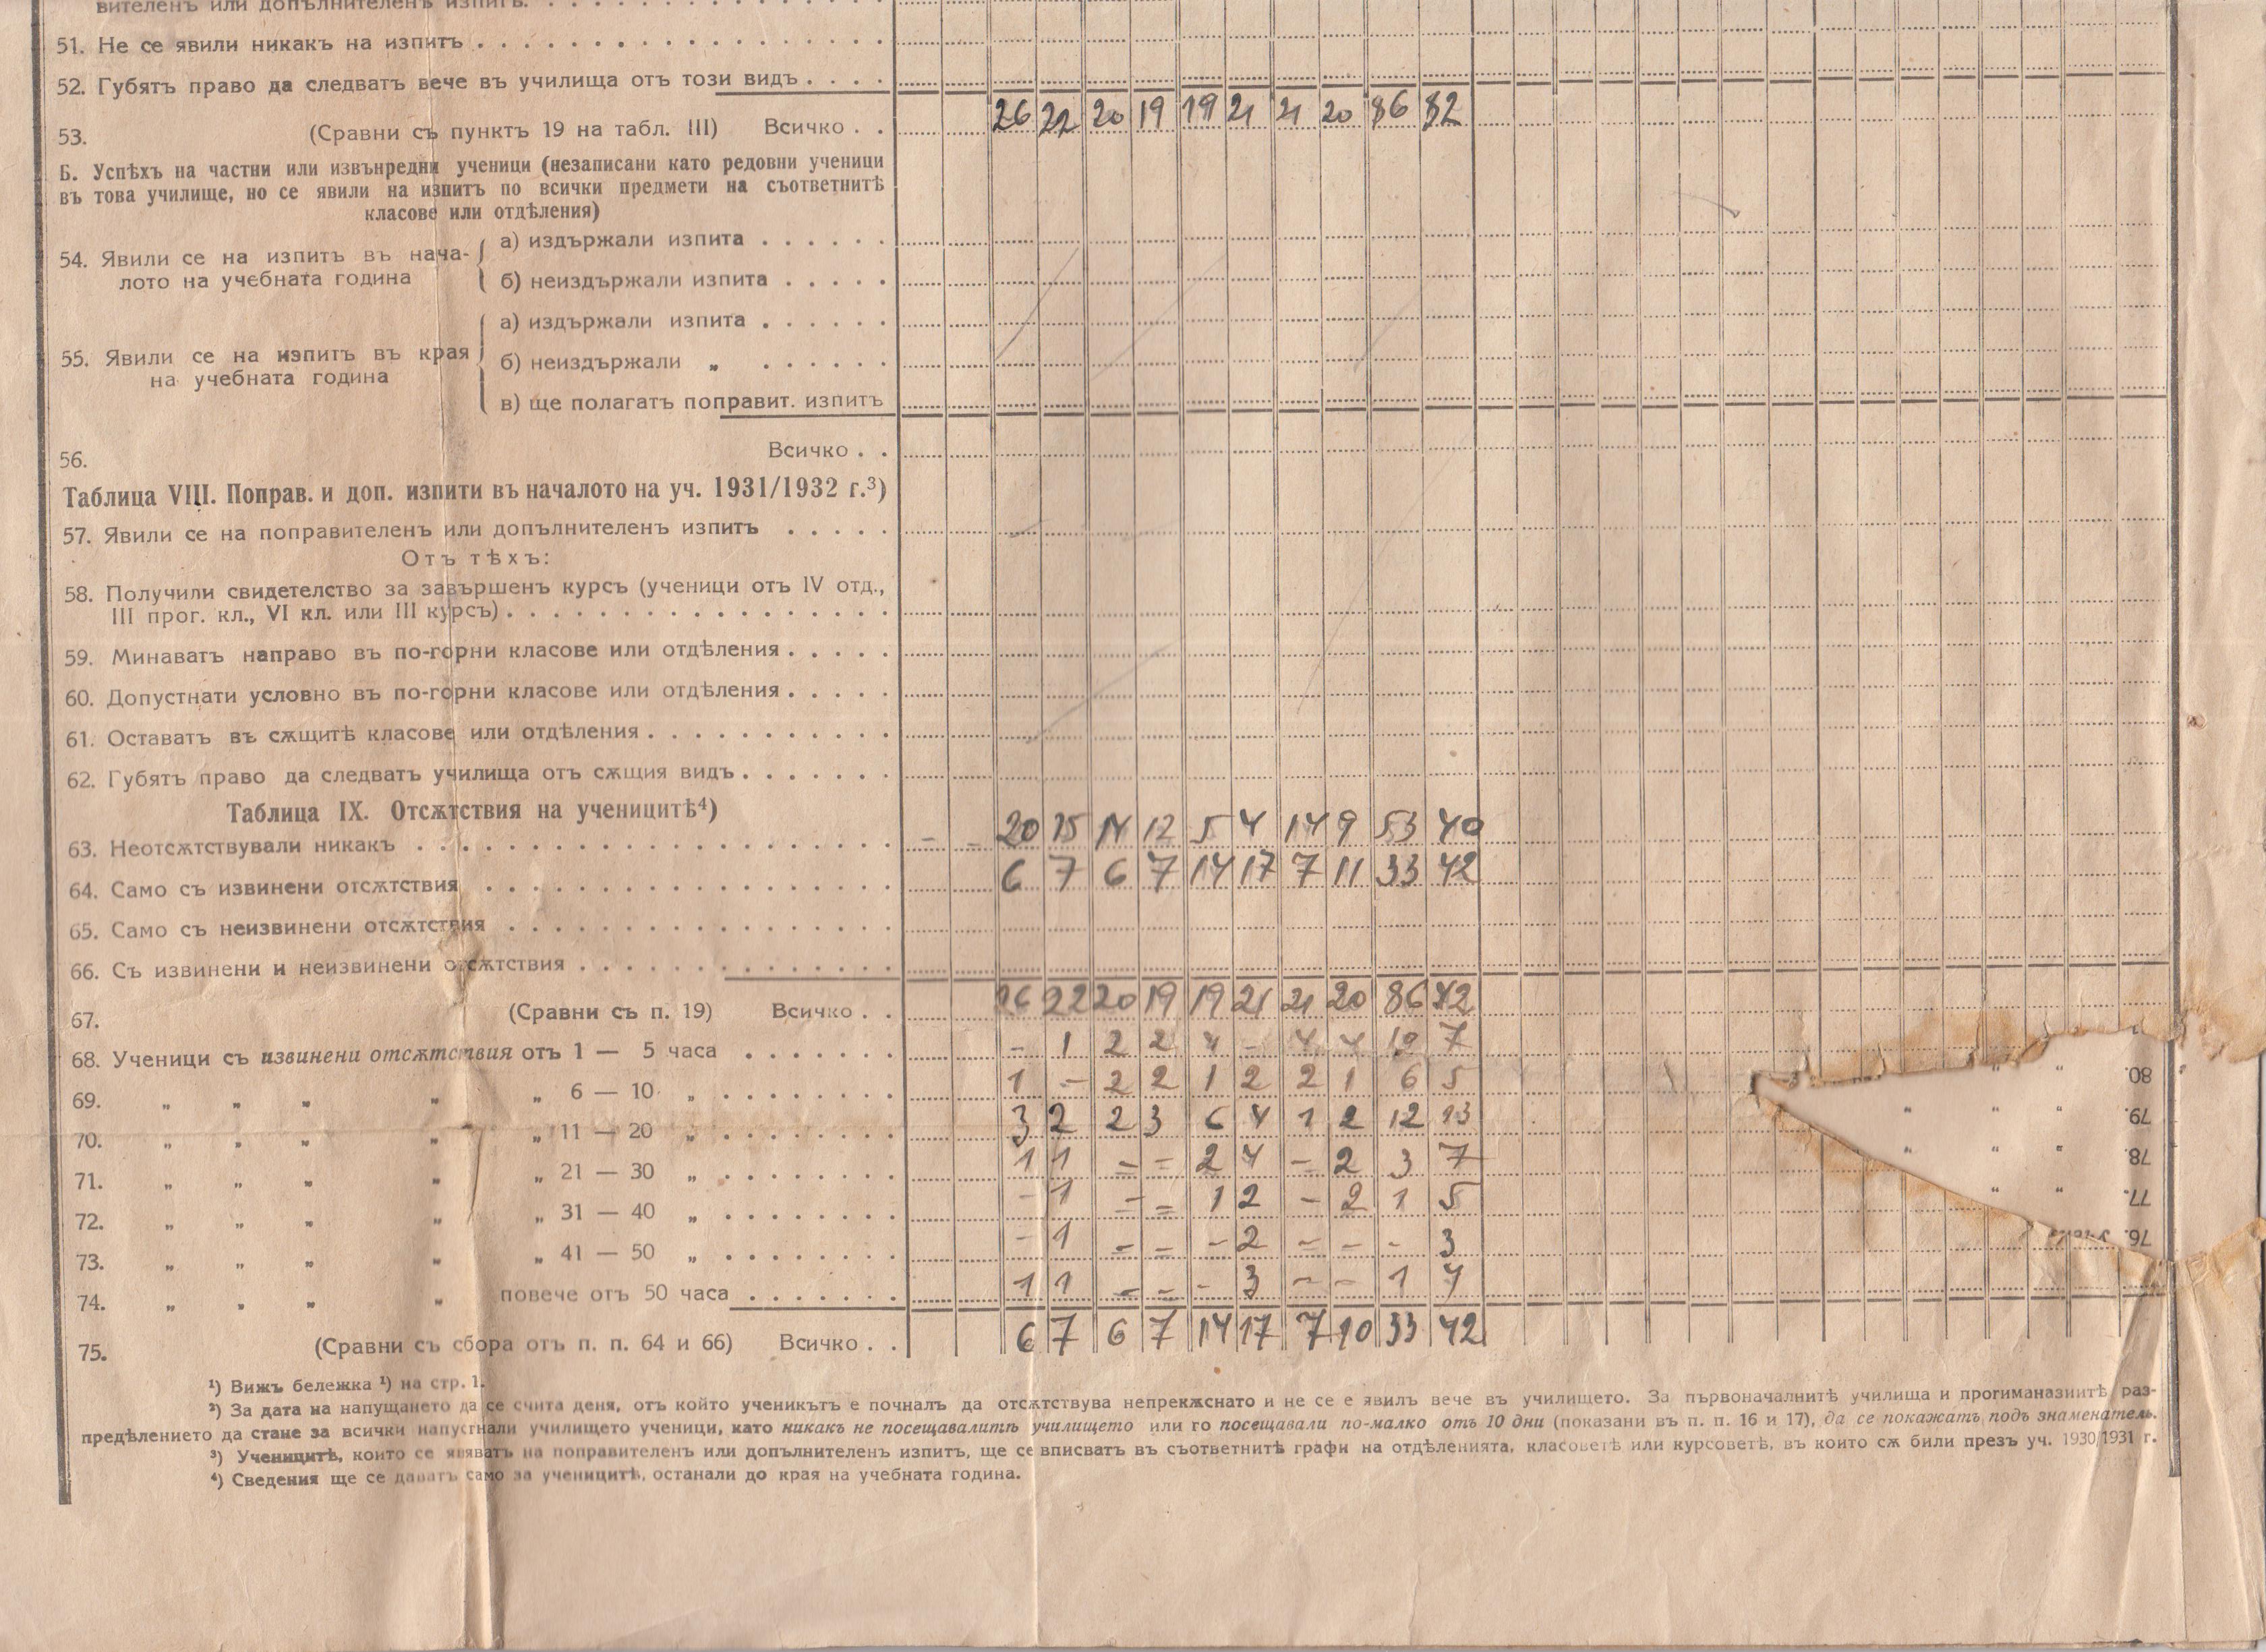 вителенъ или допълнителенъ изпитъ.
51. Не се явили никакъ на изпитъ
52. Губятъ право да следватъ вече въ училища отъ този видъ
53. (Сравни съ пунктъ 19 на табл. III) Всичко 26 22 20 19 19 21 21 20 86 82
Б. Успѣхъ на частни или извънредни ученици (незаписани като редовни ученици
въ това училище, но се явили на изпитъ по всички предмети на съответнитѣ
класове или отдѣления)
54. Явили се на изпитъ въ нача-
лото на учебната година
а) издържали изпита
б) неиздържали изпита
55. Явили се на изпитъ въ края
на учебната година
а) издържали изпита
б) неиздържали „
в) ще полагатъ поправит. изпитъ
56. Всичко
Таблица VIII. Поправ. и доп. изпити въ началото на уч. 1931/1932 г.³)
57. Явили се на поправителенъ или допълнителенъ изпитъ
Отъ тѣхъ:
58. Получили свидетелство за завършенъ курсъ (ученици отъ IV отд.,
III прог. кл., VI кл. или III курсъ)
59. Минаватъ направо въ по-горни класове или отдѣления
60. Допустнати условно въ по-горни класове или отдѣления
61. Оставатъ въ сѫщитѣ класове или отдѣления
62. Губятъ право да следватъ училища отъ сѫщия видъ
Таблица IX. Отсѫтствия на ученицитѣ⁴)
63. Неотсѫтствували никакъ - - 20 15 14 12 5 4 14 9 53 40
64. Само съ извинени отсѫтствия 6 7 6 7 14 17 7 11 33 42
65. Само съ неизвинени отсѫтствия
66. Съ извинени и неизвинени отсѫтствия
67. (Сравни съ п. 19) Всичко 26 22 20 19 19 21 21 20 86 82
68. Ученици съ извинени отсѫтствия отъ 1 — 5 часа - 1 2 2 4 - 4 4 10 7
69. „ „ „ „ „ 6 — 10 „ 1 - 2 2 1 2 2 1 6 5
70. „ „ „ „ „ 11 — 20 „ 3 2 2 3 6 4 1 2 12 13
71. „ „ „ „ „ 21 — 30 „ 1 1 - - 2 4 - 2 3 7
72. „ „ „ „ „ 31 — 40 „ - 1 - - 1 2 - 2 1 5
73. „ „ „ „ „ 41 — 50 „ - 1 - - - 2 - - - 3
74. „ „ „ „ повече отъ 50 часа 1 1 - - - 3 - - 1 4
75. (Сравни съ сбора отъ п. п. 64 и 66) Всичко 6 7 6 7 14 17 7 10 33 42
80. „ „
79. „ „ „
78. „ „ „
77. „ „
76.
¹) Вижъ бележка ¹) на стр. 1.
²) За дата на напущането да се счита деня, отъ който ученикътъ е почналъ да отсѫтствува непрекѫснато и не се е явилъ вече въ училището. За първоначалнитѣ училища и прогимназиитѣ раз-
предѣлението да стане за всички напустнали училището ученици, като никакъ не посещавалитѣ училището или го посещавали по-малко отъ 10 дни (показани въ п. п. 16 и 17), да се покажатъ подъ знаменатель.
³) Ученицитѣ, които се явяватъ на поправителенъ или допълнителенъ изпитъ, ще се вписватъ въ съответнитѣ графи на отдѣленията, класоветѣ или курсоветѣ, въ които сѫ били презъ уч. 1930/1931 г.
⁴) Сведения ще се даватъ само за ученицитѣ, останали до края на учебната година.